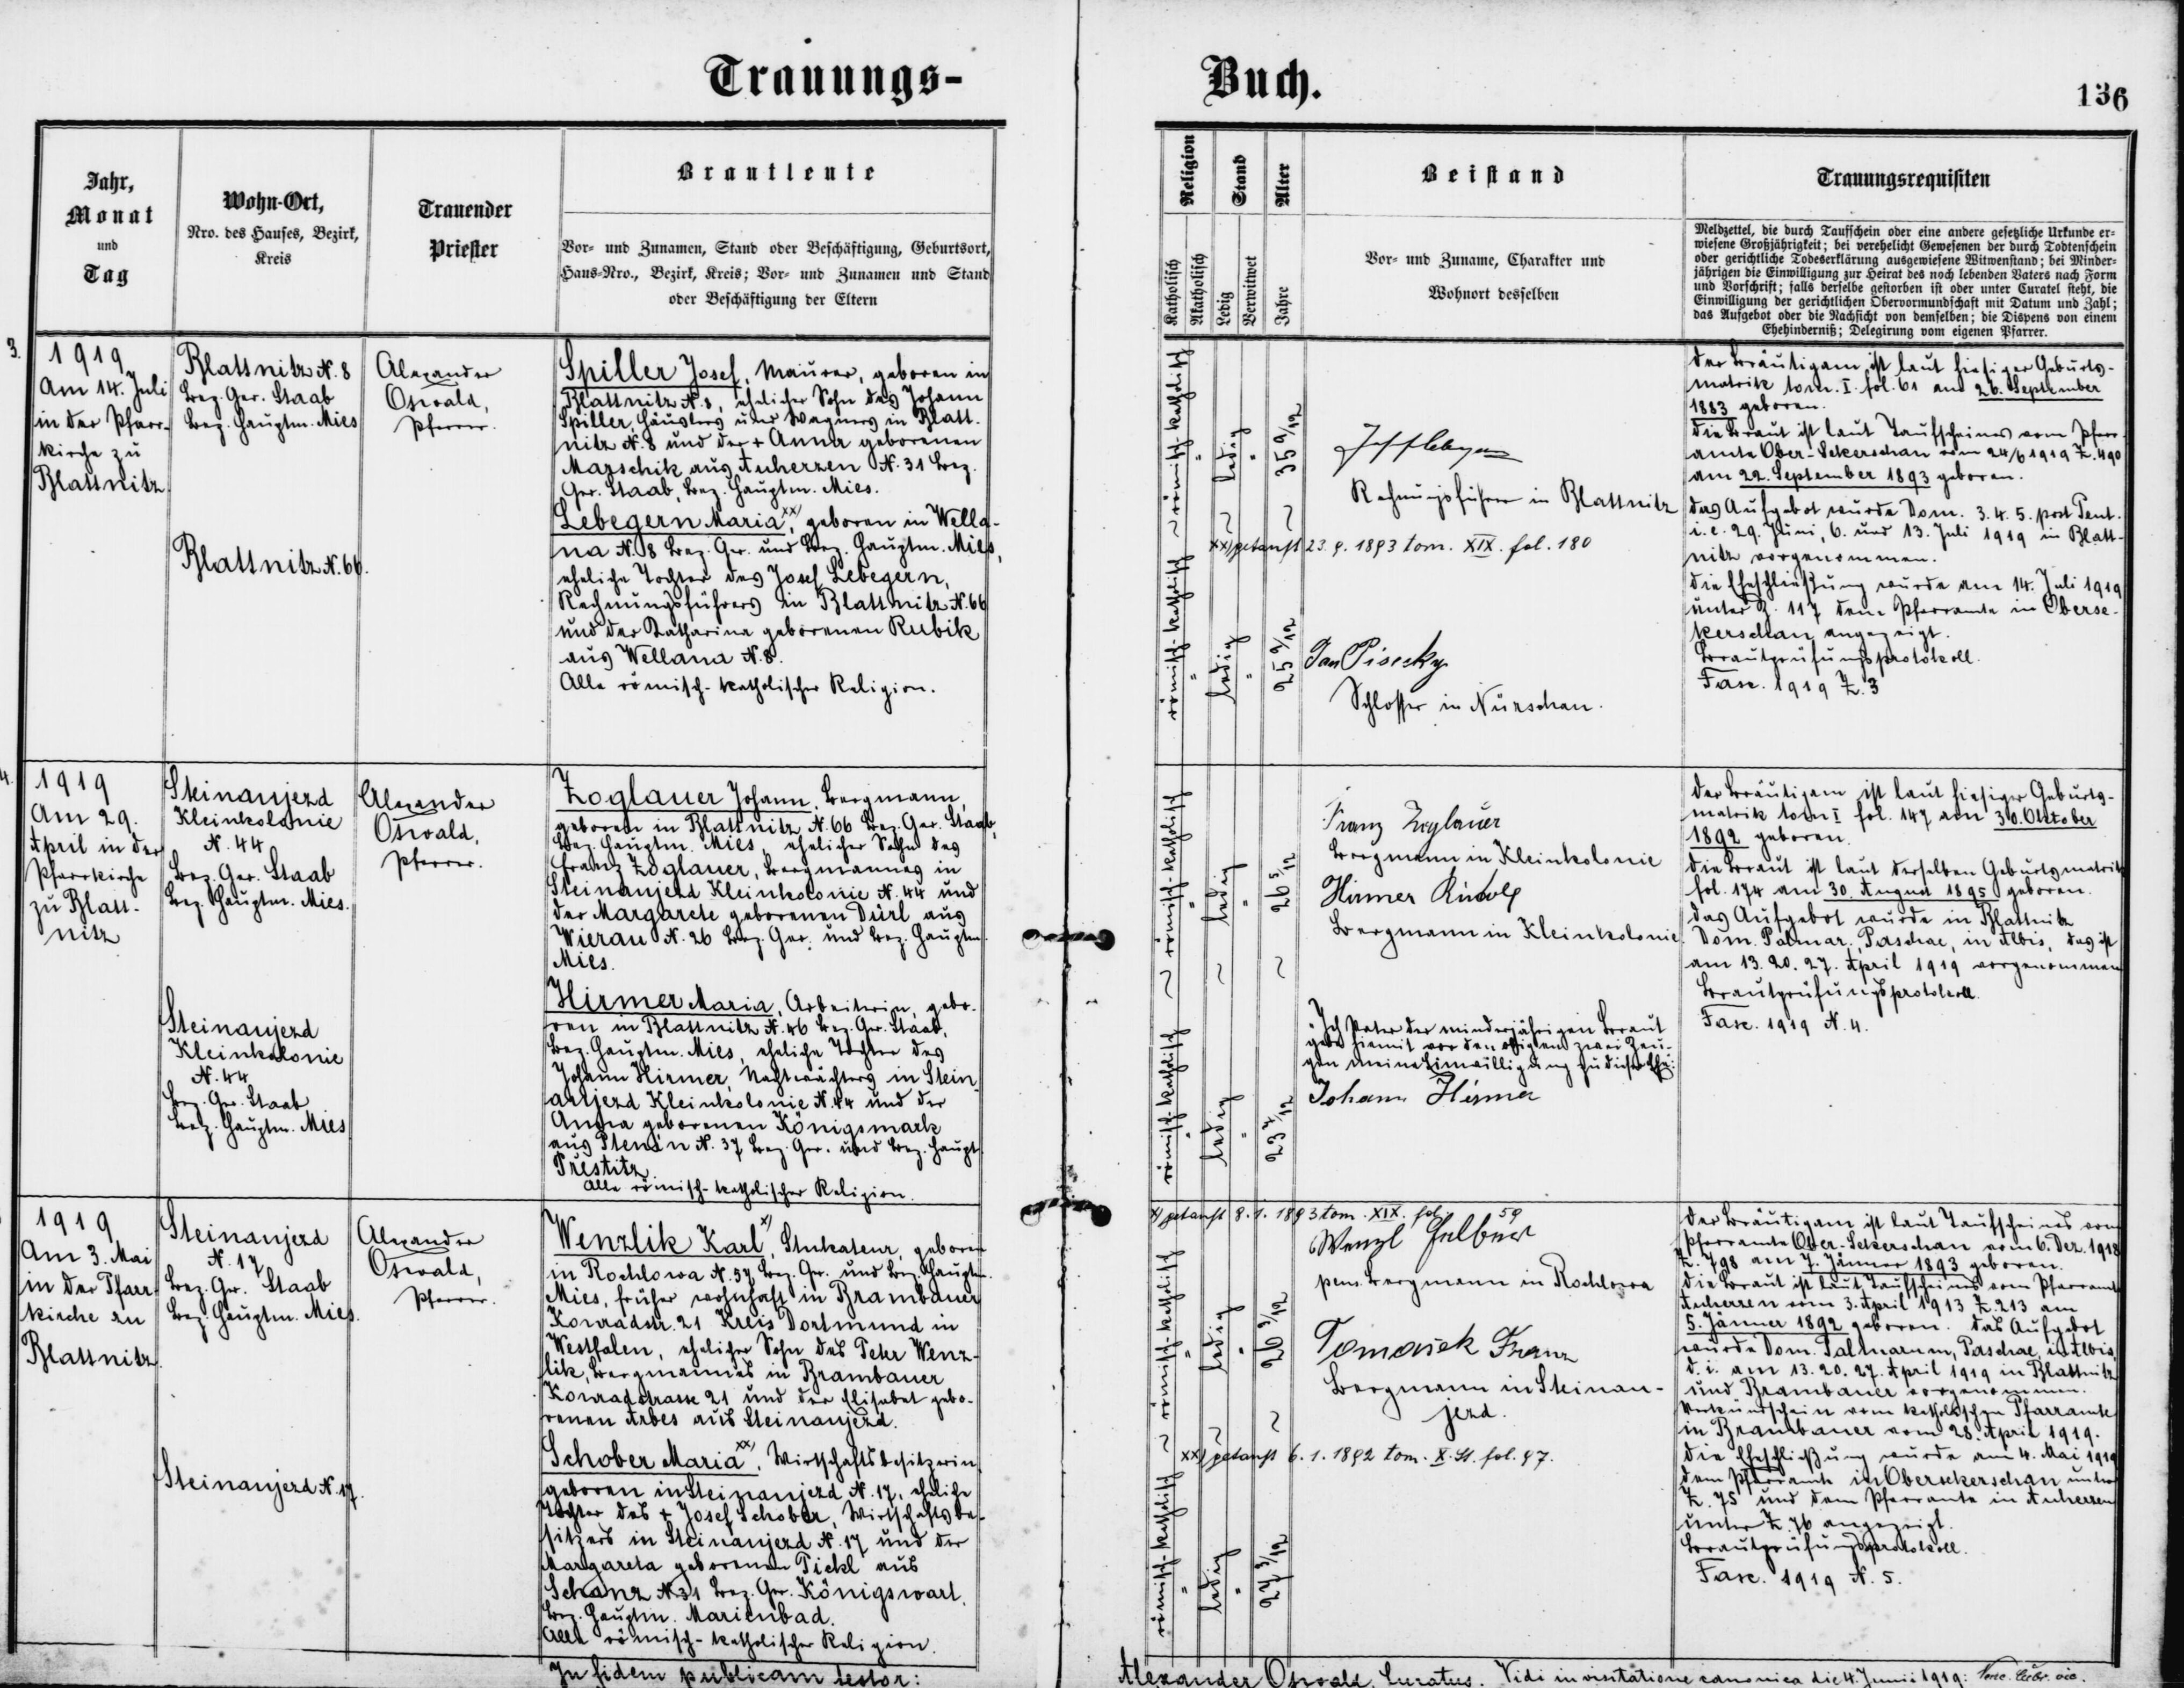 Trauungs-
Buch.
136
Jahr,
Monat
und
Tag
Wohn-Ort,
Nro. des Hauses, Bezirk,
Kreis
Trauender
Priester
Brautleute
Vor- und Zunamen, Stand oder Beschäftigung, Geburtsort,
Haus-Nro., Bezirk, Kreis; Vor- und Zunamen und Stand
oder Beschäftigung der Eltern
Religion
Katholisch
Akatholisch
Stand
Ledig
Verwitwet
Alter
Jahre
Beistand
Vor- und Zuname, Charakter und
Wohnort desselben
Trauungsrequisiten
Meldzettel, die durch Taufschein oder eine andere gesetzliche Urkunde er-
wiesene Großjährigkeit; bei verehelicht Gewesenen der durch Todtenschein
oder gerichtliche Todeserklärung ausgewiesene Witwenstand; bei Minder-
jährigen die Einwilligung zur Heirat des noch lebenden Vaters nach Form
und Vorschrift; falls derselbe gestorben ist oder unter Curatel steht, die
Einwilligung der gerichtlichen Obervormundschaft mit Datum und Zahl;
das Aufgebot oder die Nachsicht von demselben; die Dispens von einem
Ehehinderniß; Delegirung vom eigenen Pfarrer.
3.
1919
Am 14. Juli
in der Pfarr-
kirche zu
Blattnitz
Blattnitz N. 8
Bez. Ger. Staab
Bez. Hauptm. Mies
Blattnitz N. 66.
Alexander
Oswald,
Pfarrer.
Spiller Josef, Maurer, geboren in
Blattnitz N. 8, ehelicher Sohn des Johann
Spiller, Häuslers und Wagners in Blatt-
nitz N. 8 und der + Anna geborenen
Marschik aus Auherzen N. 31 Bez.
Ger. Staab, Bez. Hauptm. Mies.
Lebegern Maria xx), geboren in Wella-
na N. 8 Bez. Ger. und Bez. Hauptm. Mies,
eheliche Tochter des Josef Lebegern,
Rechnungsführers in Blattnitz N. 66
und der Katharina geborenen Rubik
aus Wellana N. 8.
Alle römisch-katholischer Religion.
römisch-katholisch
"
ledig
"
35 9/12
römisch-katholisch
"
ledig
"
25 9/12
Rechnungsführer in Blattnitz
xx) getauft 23. 9. 1893 tom. XIX. fol. 180
Jan Pisecky
Schlosser in Nürschan.
Der Bräutigam ist laut hiesiger Geburts-
matrik tom. I. fol. 61 am 26. September
1883 geboren.
Die Braut ist laut Taufscheines vom Pfarr-
amte Ober-Sekerschan vom 24/6 1919 Z. 490
am 22. September 1893 geboren.
Das Aufgebot wurde Dom. 3. 4. 5. post Pent.
i. e. 29. Juni, 6. und 13. Juli 1919 in Blatt-
nitz vorgenommen.
Die Eheschließung wurde am 14. Juli 1919
unter Z. 117 dem Pfarramte in Oberse-
kerschan angezeigt.
Brautprüfungsprotokoll.
Fasc. 1919 Z. 3
4.
1919
Am 29.
April in der
Pfarrkirche
zu Blatt-
nitz
Steinaujezd
Kleinkolonie
N. 44
Bez. Ger. Staab
Bez. Hauptm. Mies.
Steinaujezd
Kleinkolonie
N. 44
Bez. Ger. Staab
Bez. Hauptm. Mies
Alexander
Oswald,
Pfarrer.
Zoglauer Johann, Bergmann,
geboren in Blattnitz N. 66 Bez. Ger. Staab,
Bez. Hauptm. Mies, ehelicher Sohn des
Franz Zoglauer, Bergmannes in
Steinaujezd Kleinkolonie N. 44 und
der Margarete geborenen Dürl aus
Wierau N. 26 Bez. Ger. und Bez. Hauptm.
Mies.
Hirmer Maria, Arbeiterin, gebo-
ren in Blattnitz N. 46 Bez. Ger. Staab,
Bez. Hauptm. Mies, eheliche Tochter des
Johann Hirmer, Nachtwächters in Stein-
aujezd Kleinkolonie N. 44 und der
Anna geborenen Königsmark
aus N. 37 Bez. Ger. und Bez. Haupt.
Prestitz
Alle römisch-katholischer Religion.
römisch-katholisch
"
ledig
"
26 5/12
römisch-katholisch
"
ledig
"
23 /12
Franz Zoglauer
Bergmann in Kleinkolonie
Hirmer Rudolf
Bergmann in Kleinkolonie
"Ich Vater der minderjährigen Braut
gebe hiemit vor den obigen zwei Zeu-
gen meine Einwilligung zu dieser Ehe."
Johann Hirmer
Der Bräutigam ist laut hiesiger Geburts-
matrik tom I fol. 147 am 30. Oktober
1892 geboren.
Die Braut ist laut derselben Geburtsmatrik
fol. 174 am 30. August 1895 geboren.
Das Aufgebot wurde in Blattnitz
Dom. Palmar., Paschae, in Albis, das ist
am 13. 20. 27. April 1919 vorgenommen
Brautprüfungsprotokoll.
Fasc. 1919 N. 4.
1919
Am 3. Mai
in der Pfarr-
kirche zu
Blattnitz.
Steinaujezd
N. 17
Bez. Ger. Staab
Bez. Hauptm. Mies.
Steinaujezd N. 17.
Alexander
Oswald,
Pfarrer.
Wenzlik Karl x), Stukateur, geboren
in Rochlowa N. 57 Bez. Ger. und Bez. Hauptm.
Mies, früher wohnhaft in Brambauer
Konradstr. 21 Kreis Dortmund in
Westfalen, ehelicher Sohn des Peter Wenz-
lik, Bergmannes in Brambauer
Konradstrasse 21 und der Elisabet gebo-
renen Arbes aus Steinaujezd.
Schober Maria xx), Wirtschaftsbesitzerin
geboren in Steinaujezd N. 17, eheliche
Tochter des + Josef Schober, Wirtschaftsbe-
sitzers in Steinaujezd N. 17 und der
Margareta geborenen Pickl aus
Schanz N. 31 Bez. Ger. Königswart,
Bez. Hauptm. Marienbad.
Alle römisch-katholischer Religion.
x) getauft 8. 1. 1893 tom. XIX. fol. 59
römisch-katholisch
"
ledig
"
26 3/12
römisch-katholisch
"
ledig
"
27 3/12
Wenzl
pens. Bergmann in Rochlowa
Tomaschek Franz
Bergmann in Steinau-
jezd.
xx) getauft 6. 1. 1892 tom. X. St. fol. 97.
Der Bräutigam ist laut Taufscheines vom
Pfarramte Ober-Sekerschan vom 6. Dez. 1918
Z. 798 am 7. Jänner 1893 geboren.
Die Braut ist laut Taufscheines vom Pfarramt
Auherzen vom 3. April 1913 Z. 213 am
5. Jänner 1892 geboren. Das Aufgebot
wurde Dom. Palmarum, Paschae, in Albis,
d. i. am 13. 20. 27. April 1919 in Blattnitz
und Brambauer vorgenommen.
Verkündschein vom katholischen Pfarramte
in Brambauer vom 28. April 1919.
Die Eheschließung wurde am 4. Mai 1919
dem Pfarramte in Obersekerschan unter
Z. 75 und dem Pfarramte in Auherzen
unter Z. 76 angezeigt.
Brautprüfungsprotokoll.
Fasc. 1919 N. 5.
In fidem publicam testor:
Alexander Oswald, Curatus. Vidi in visitatione canonica die 4. Junii 1919: